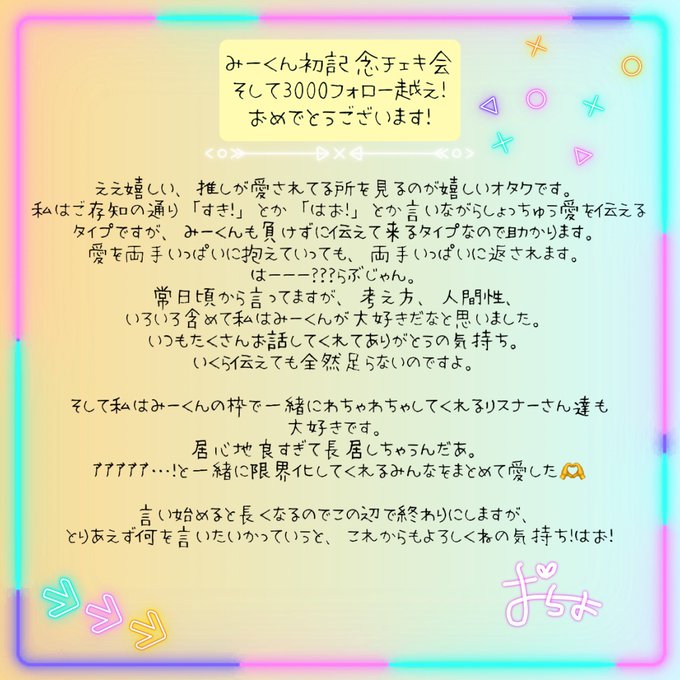 みーくん初記念チェキ会
そして3000フォロー越え!
おめでとうございます!
ええ嬉しい、推しが愛されてる所を見るのが嬉しいオタクです。
私はご存知の通り「すき!」とか「はお!」とか言いながらしょっちゅう愛を伝える
タイプですが、みーくんも負けずに伝えて来るタイプなので助かります。
愛を両手いっぱいに抱えていっても、両手いっぱいに返されます。
はーーー???らぶじゃん。
常日頃から言ってますが、考え方、人間性、
いろいろ含めて私はみーくんが大好きだなと思いました。
いつもたくさんお話してくれてありがとうの気持ち。
いくら伝えても全然足らないのですよ。
そして私はみーくんの枠で一緒にわちゃわちゃしてくれるリスナーさん達も
大好きです。
居心地良すぎて長居しちゃうんだあ。
ｱｱｱｱｱ…!と一緒に限界化してくれるみんなをまとめて愛した🫶
言い始めると長くなるのでこの辺で終わりにしますが、
とりあえず何を言いたいかっていうと、これからもよろしくねの気持ち!はお!
おちよ